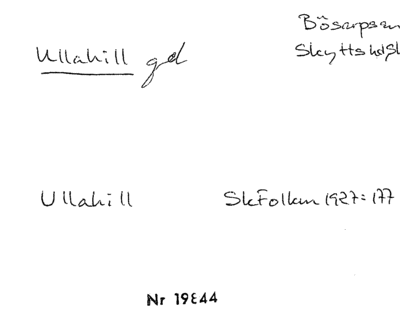 Ullahill gd
Bösarps
Skytts
Ullahill
SkFolkm 1927:177
Nr 19844